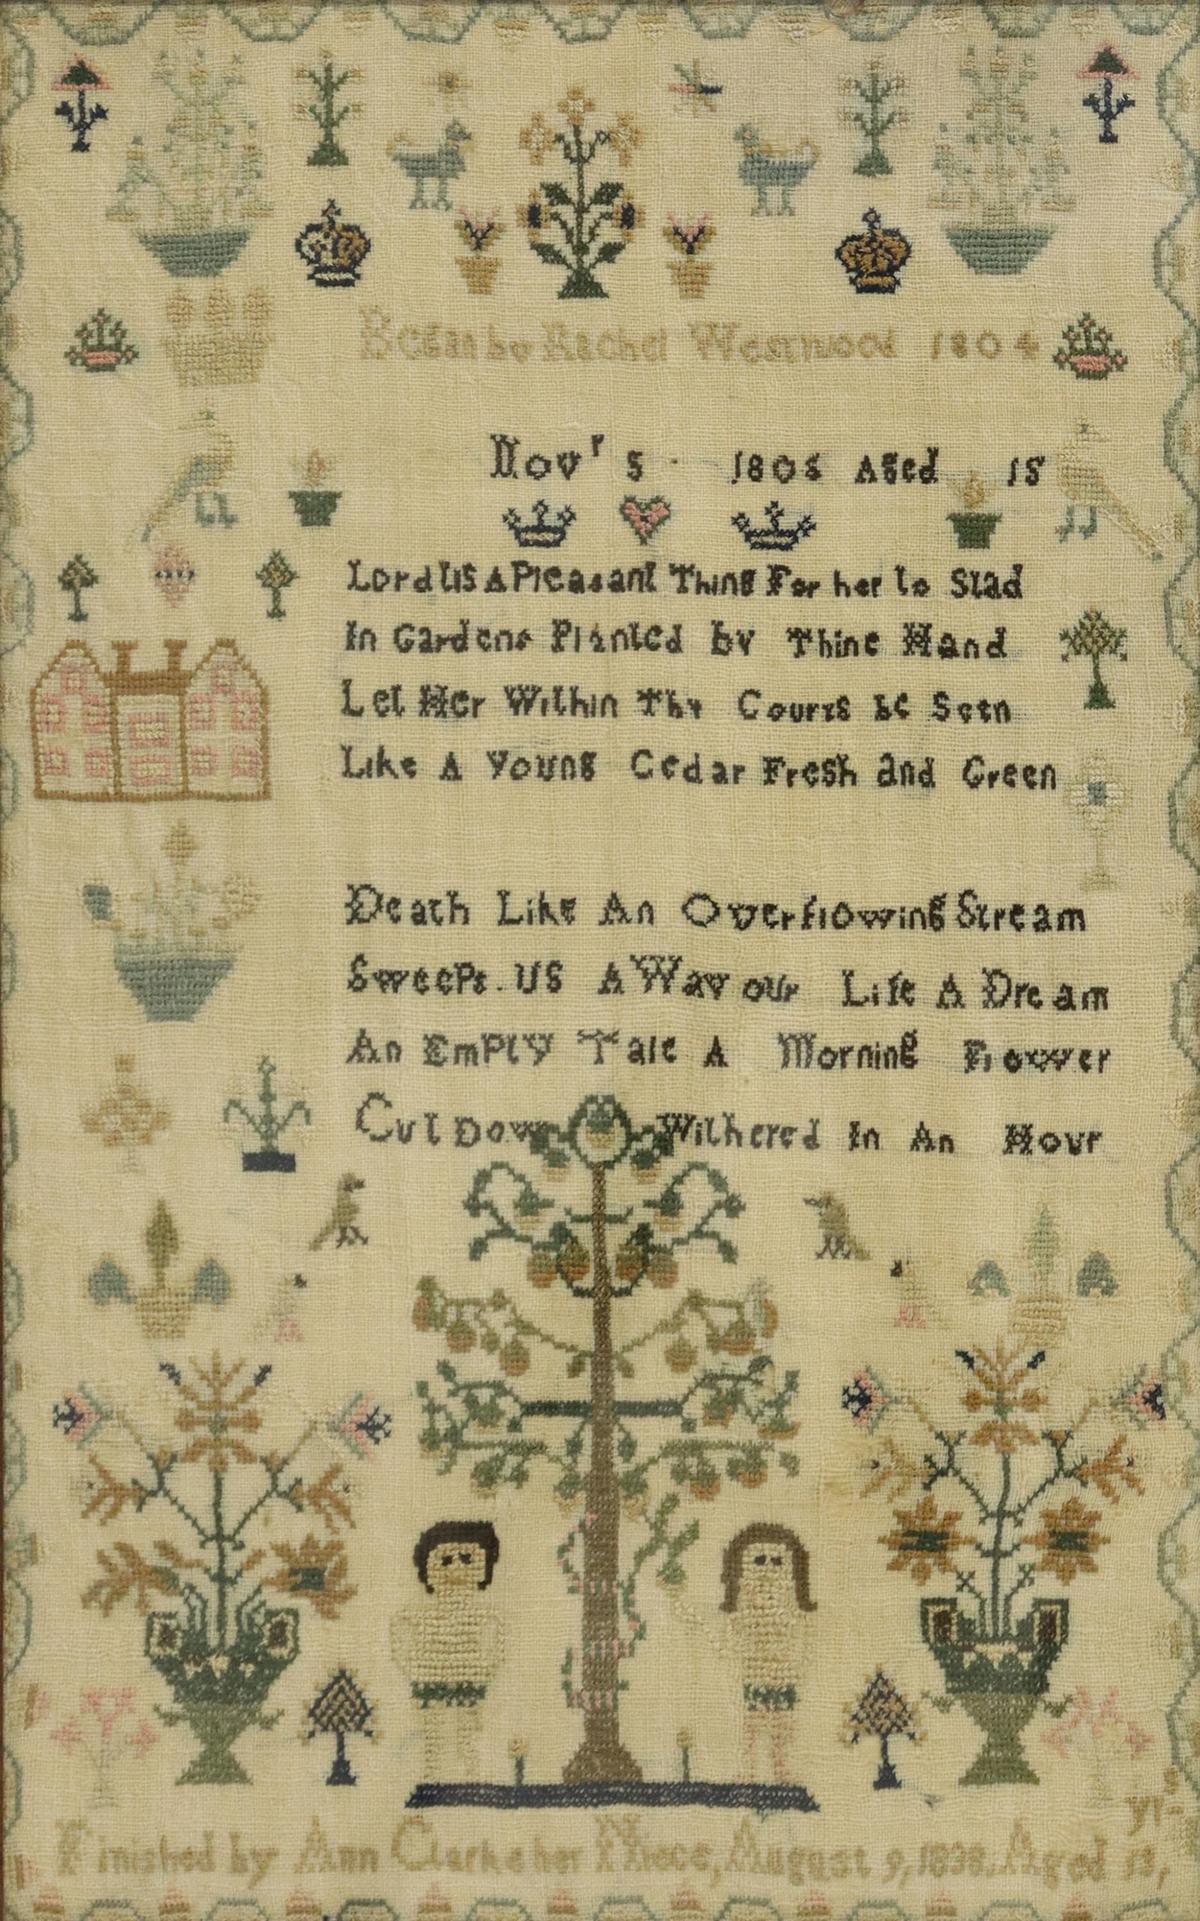 Began by Rachel Westwood 1804
Nov'r 5 1804 Aged 15
Lord tis A Pleasant Thing For her to Stad
In Gardens Planted by Thine Hand
Let Her Within Thy Courts be Seen
Like A Young Cedar Fresh and Green
Death Like An Overflowing Stream
Sweeps US AWay our Life A Dream
An EmPty Tale A Morning Flower
Cut Down Withered In An Hour
yrs
Finished by Ann Clarke her Niece, August 9, 1838. Aged 13,